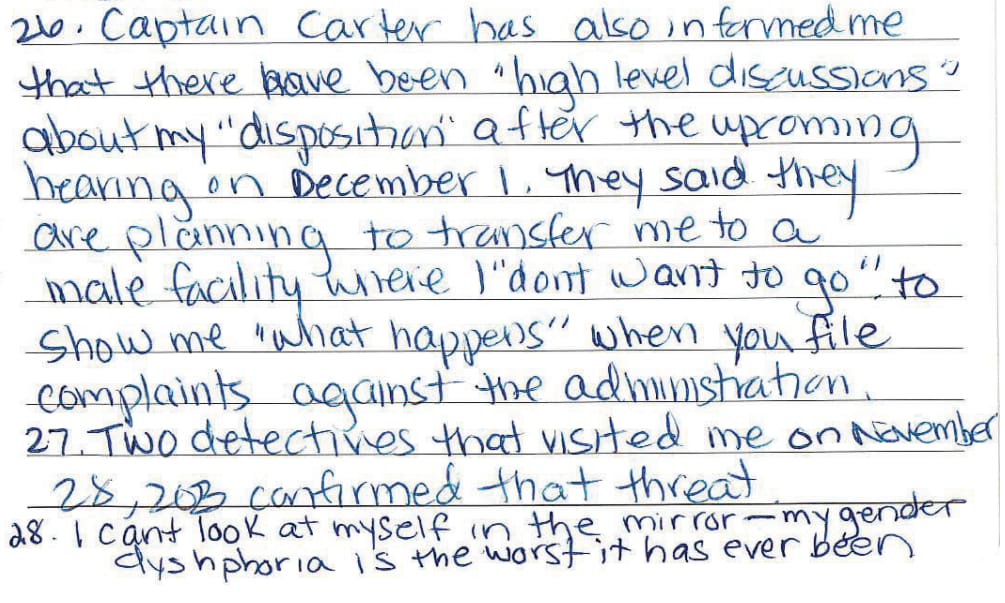 26. Captain Carter has also informed me
that there have been "high level discussions"
about my "disposition" after the upcoming
hearing on December 1. They said they
are planning to transfer me to a
male facility where I "dont want to go" to
show me "what happens" when you file
complaints against the administration.
27. Two detectives that visited me on November
28, 2013 confirmed that threat.
28. I cant look at myself in the mirror – my gender
dyshphoria is the worst it has ever been